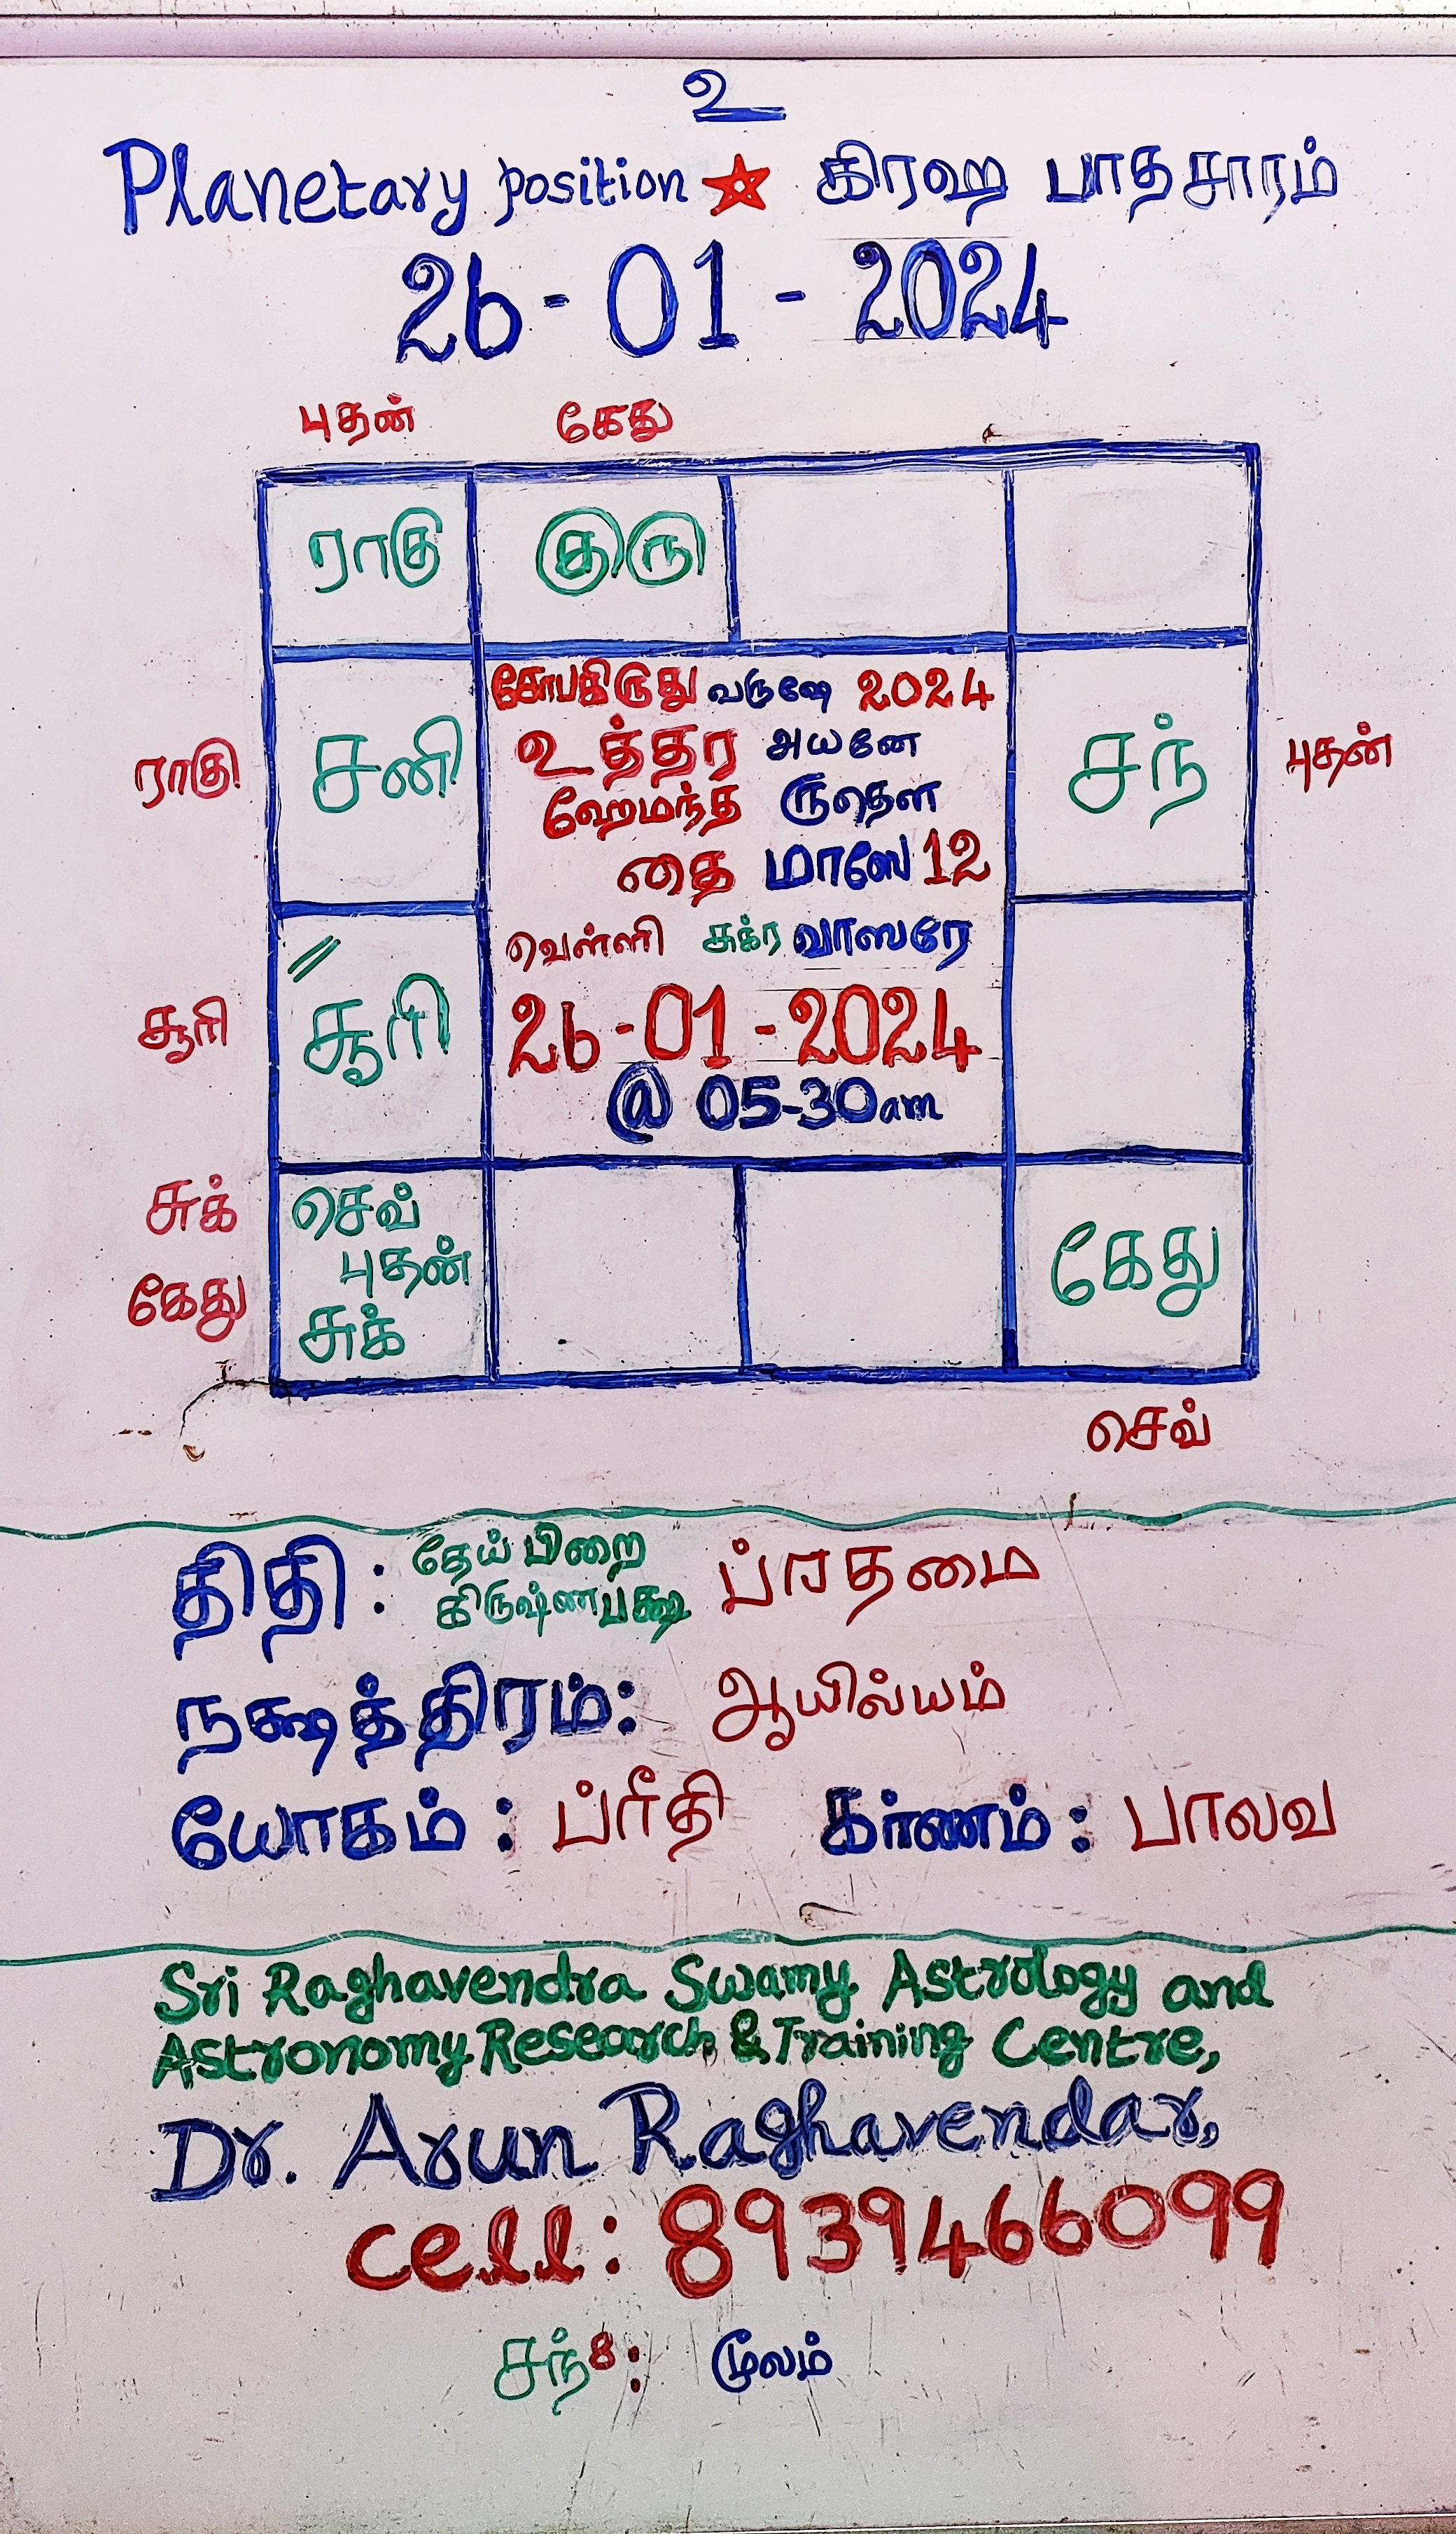 உ
Planetary position ☆ கிரஹ பாதசாரம்
26-01-2024
புதன் கேது
ராகு குரு
சோபகிருது வருஷே 2024
உத்தர அயனே
ஹேமந்த ருதௌ
தை மாஸே 12
ராகு சனி சந் புதன்
வெள்ளி சுக்ர வாஸரே
சூரி சூரி
26-01-2024
@ 05-30am
சுக் செவ்
புதன்
கேது சுக் கேது
செவ்
திதி : தேய் பிறை ப்ரதமை
கிருஷ்ணபக்ஷ
நக்ஷத்திரம்: ஆயில்யம்
யோகம் : ப்ரீதி கர்ணம் : பாலவ
Sri Raghavendra Swamy Astrology and
Astronomy Research & Training Centre,
Dr. Arun Raghavendar,
cell: 8939466099
சந்8: மூலம்